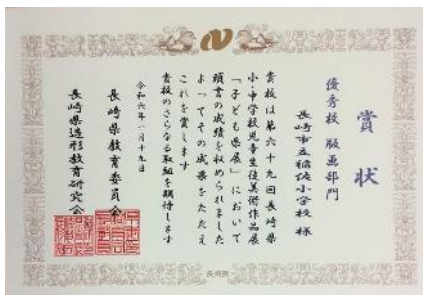 賞状
優秀校 版画部門
長崎市立稲佐小学校 様
貴校は第六十九回長崎県
小・中学校児童生徒美術作品展
「子ども県展」において
頭書の成績を収められました
よってその成果をたたえ
これを賞します
貴校のさらなる取組を期待します
令和六年一月十九日
長崎県教育委員会
長崎県造形教育研究会
長崎県